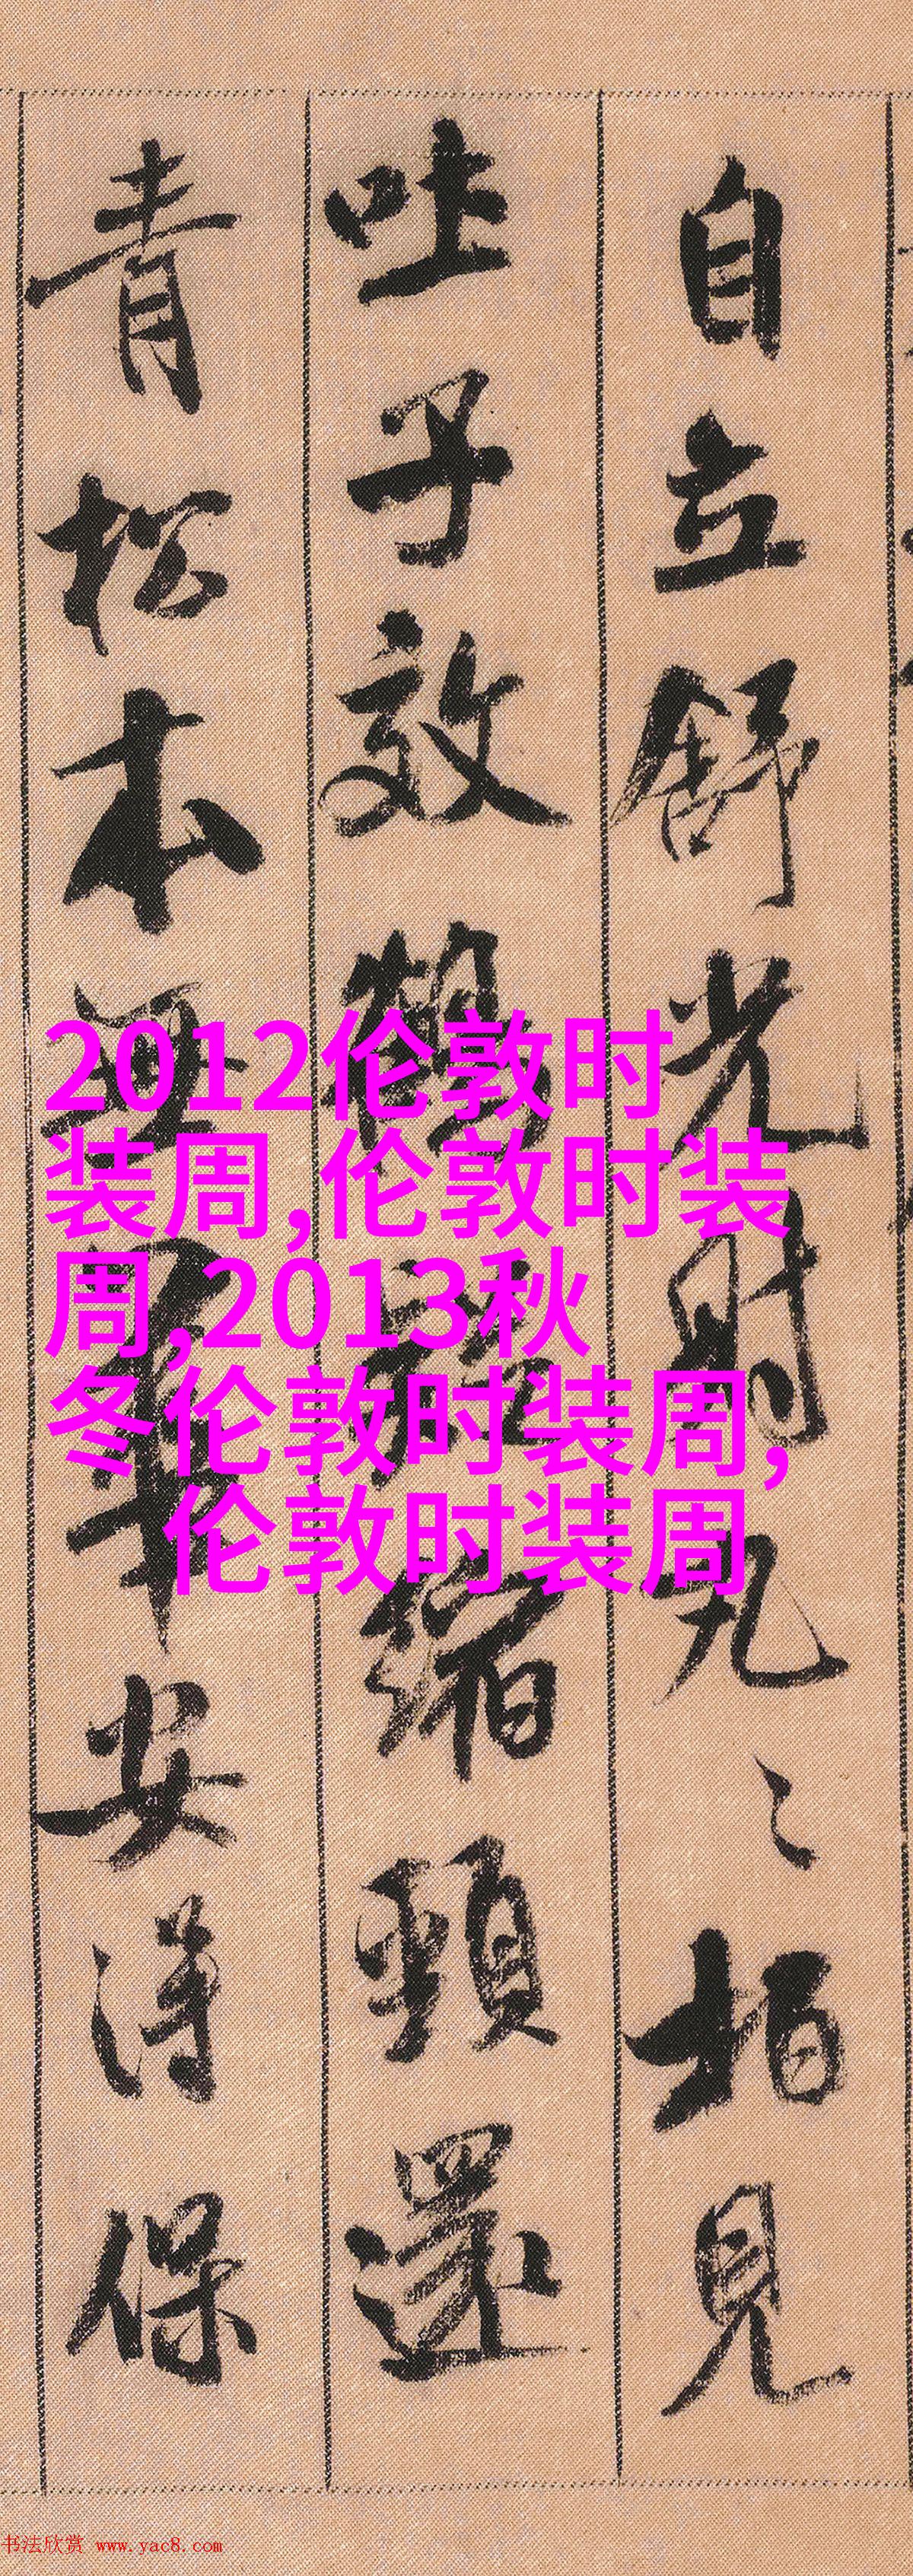 自立舒光射丸〻柏見
吐子效鶴疑縮頸還
青松本無華安得保
2012伦敦时
装周,伦敦时装
周,2013秋
冬伦敦时装周,
伦敦时装周
书法欣赏 www.yac8.com